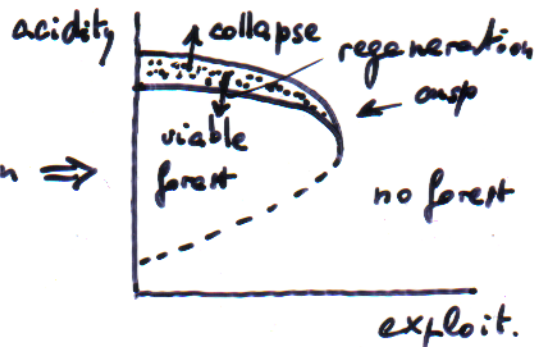 acidity
collapse
regeneration
cusp
viable
forest
n ⇒
no forest
exploit.